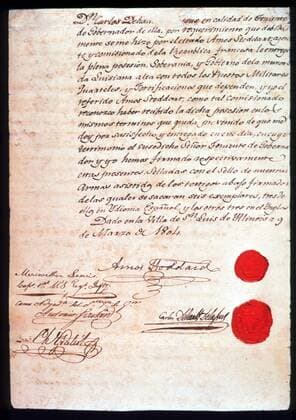 Dn Carlos Dehau que en calidad de Teniente
de Gobernador de ella, por requerimiento que debida-
mente se me hizo por el citado Amos Stoddard, Agente
y comisionado de la Republica francesa le entregue
la plena posesion, Soberania, y Govierno de la misma
Luisiana alta con todos los Puestos Militares
Quarteles, y Fortificaciones que dependen, y yo el
referido Amos Stoddard, como tal Comisionado
reconozco haber recibido la dicha posesion en los
mismos terminos que de que me
doy por satisfecho y entregado en este dia, en cuyo
testimonio el susodicho Señor Teniente de Goberna-
dor y yo hemos firmado respectivamente
estas presentes Selladas con el Sello de nuestras
Armas asistidos de los testigos abajo firmados
de las quales se sacaron seis exemplares, tres
en Ydioma Español, y los otros tres en el Yngles
Dado en la Villa de Sn Luis de Ylinoes a 9
de Marzo de 1804
Amos Stoddard
Meriwether Lewis
Capt. 1st U.S. Regt. Infty.
Carlos Dehault Delassus
Antonio Soulard